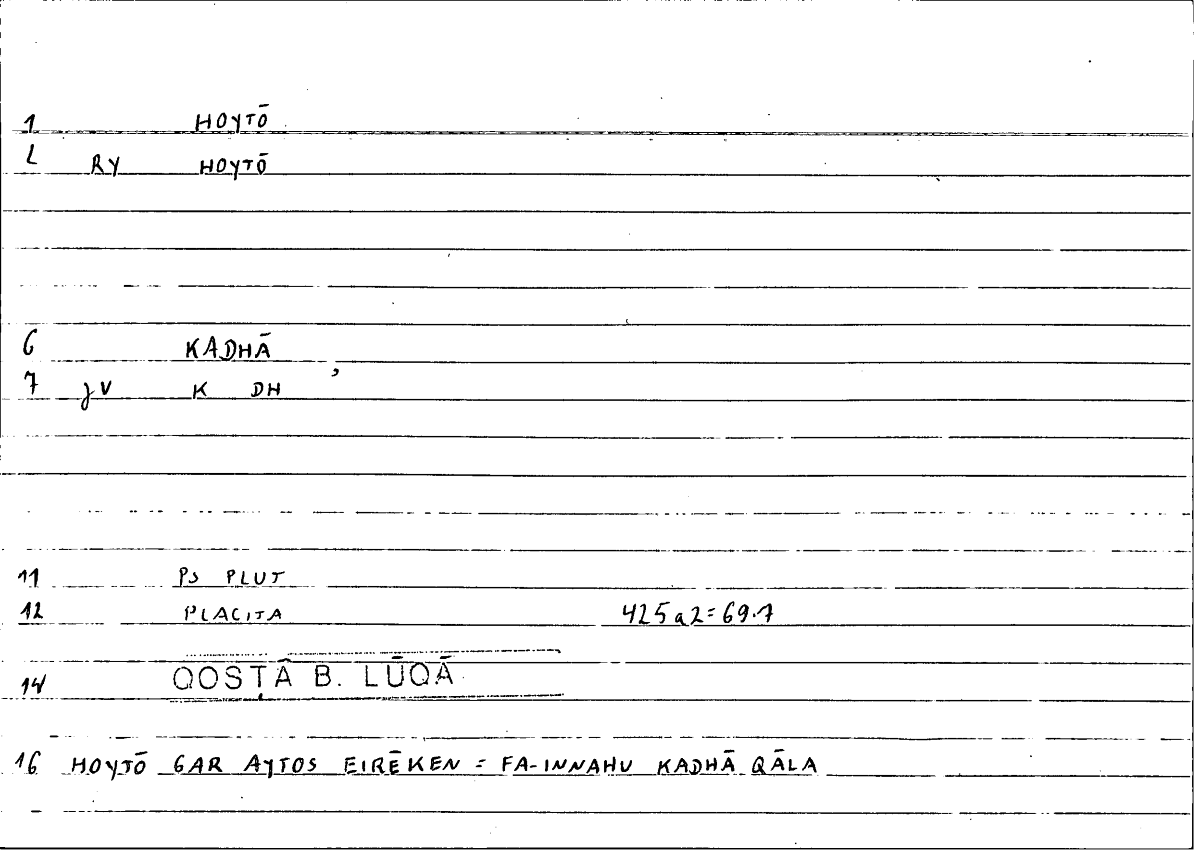 1 HOYTŌ
2 RY HOYTŌ
6 KADHĀ
7 JV K DH
11 PS PLUT
12 PLACITA 425a2=69.7
14 QOSṬĀ B. LŪQĀ
16 HOYTŌ GAR AYTOS EIRĒKEN = FA-INNAHU KADHĀ QĀLA